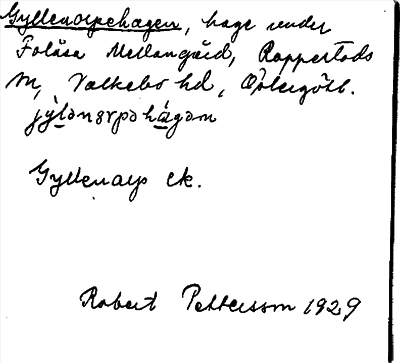 Gyllenarpehagen, hage under
Folåsa Mellangård, Rappestads
sn, Valkebo hd, Östergötl.
jýlənarpəhágən
Gyllenarp ek.
Robert Pettersson 1929